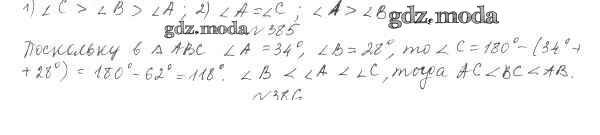 1) ∠C > ∠B > ∠A; 2) ∠A = ∠C; ∠A > ∠B gdz.moda
gdz.moda №385
Поскольку в ΔABC ∠A = 34°, ∠B = 28°, то ∠C = 180° - (34° +
+ 28°) = 180° - 62° = 118°. ∠B < ∠A < ∠C, тогда AC < BC < AB.
№386